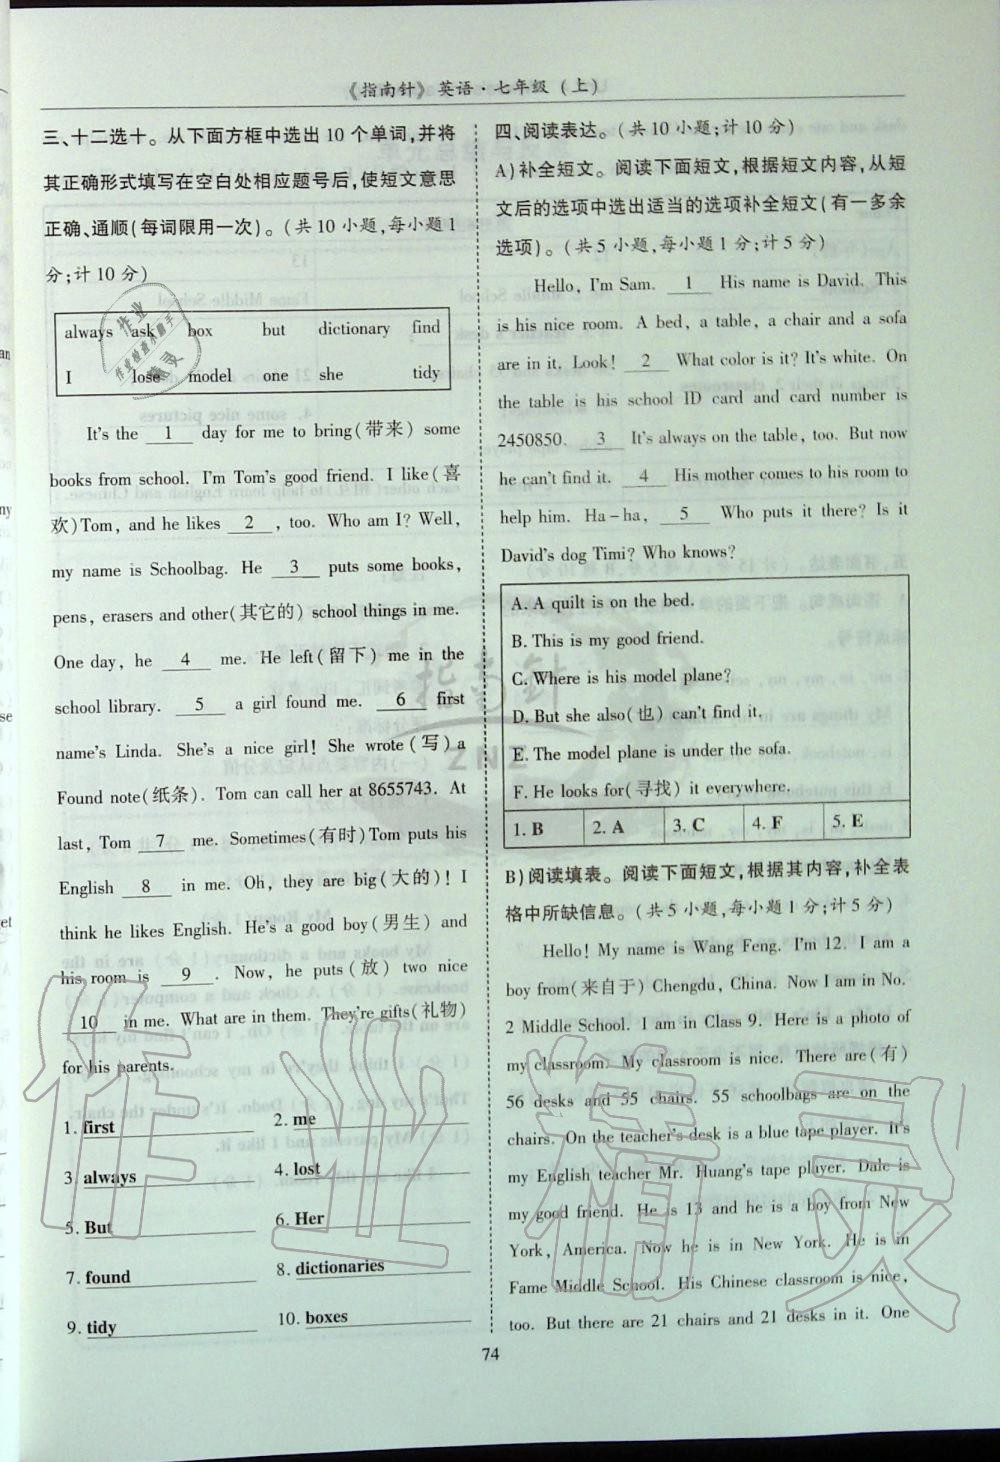 《指南针》英语·七年级(上)
三、十二选十。从下面方框中选出 10 个单词,并将
其正确形式填写在空白处相应题号后,使短文意思
正确、通顺(每词限用一次)。(共 10 小题,每小题 1
分;计 10 分)
always ask box but dictionary find
I lose model one she tidy
It's the 1 day for me to bring(带来) some
books from school. I'm Tom's good friend. I like(喜
欢)Tom, and he likes 2 , too. Who am I? Well,
my name is Schoolbag. He 3 puts some books,
pens, erasers and other(其它的) school things in me.
One day, he 4 me. He left(留下) me in the
school library. 5 a girl found me. 6 first
name's Linda. She's a nice girl! She wrote(写)a
Found note(纸条). Tom can call her at 8655743. At
last, Tom 7 me. Sometimes(有时)Tom puts his
English 8 in me. Oh, they are big(大的)! I
think he likes English. He's a good boy(男生) and
his room is 9 . Now, he puts(放) two nice
10 in me. What are in them. They're gifts(礼物)
for his parents.
1. first 2. me
3. always 4. lost
5. But 6. Her
7. found 8. dictionaries
9. tidy 10. boxes
四、阅读表达。(共 10 小题;计 10 分)
A)补全短文。阅读下面短文,根据短文内容,从短
文后的选项中选出适当的选项补全短文(有一多余
选项)。(共 5 小题,每小题 1 分;计 5 分)
Hello, I'm Sam. 1 His name is David. This
is his nice room. A bed, a table, a chair and a sofa
are in it. Look! 2 What color is it? It's white. On
the table is his school ID card and card number is
2450850. 3 It's always on the table, too. But now
he can't find it. 4 His mother comes to his room to
help him. Ha-ha, 5 Who puts it there? Is it
David's dog Timi? Who knows?
A. A quilt is on the bed.
B. This is my good friend.
C. Where is his model plane?
D. But she also(也) can't find it.
E. The model plane is under the sofa.
F. He looks for(寻找) it everywhere.
1. B 2. A 3. C 4. F 5. E
B)阅读填表。阅读下面短文,根据其内容,补全表
格中所缺信息。(共 5 小题,每小题 1 分;计 5 分)
Hello! My name is Wang Feng. I'm 12. I am a
boy from(来自于) Chengdu, China. Now I am in No.
2 Middle School. I am in Class 9. Here is a photo of
my classroom. My classroom is nice. There are(有)
56 desks and 55 chairs. 55 schoolbags are on the
chairs. On the teacher's desk is a blue tape player. It's
my English teacher Mr. Huang's tape player. Dale is
my good friend. He is 13 and he is a boy from New
York, America. Now he is in New York. He is in
Fame Middle School. His Chinese classroom is nice,
too. But there are 21 chairs and 21 desks in it. One
74